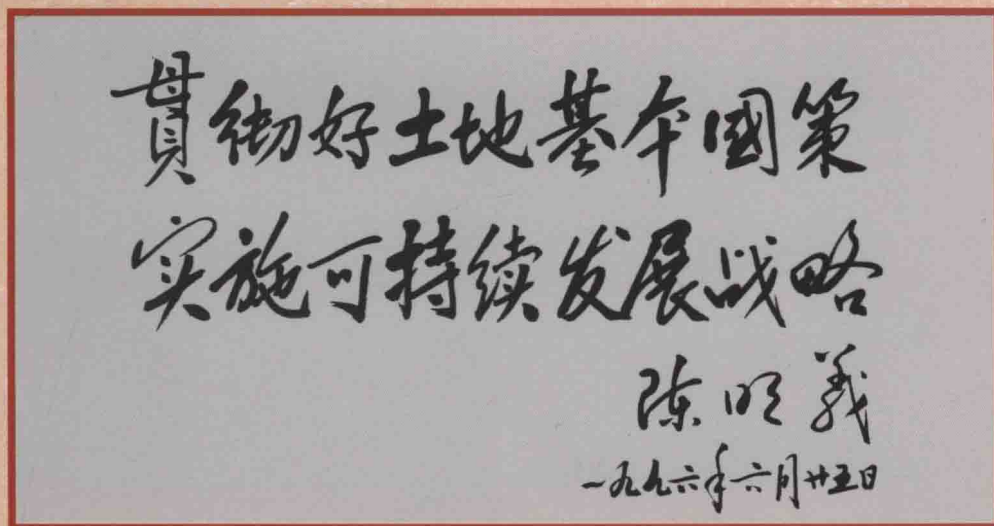 貫彻好土地基本國策
实施可持续发展战略
陈明義
一九九六年六月廿五日